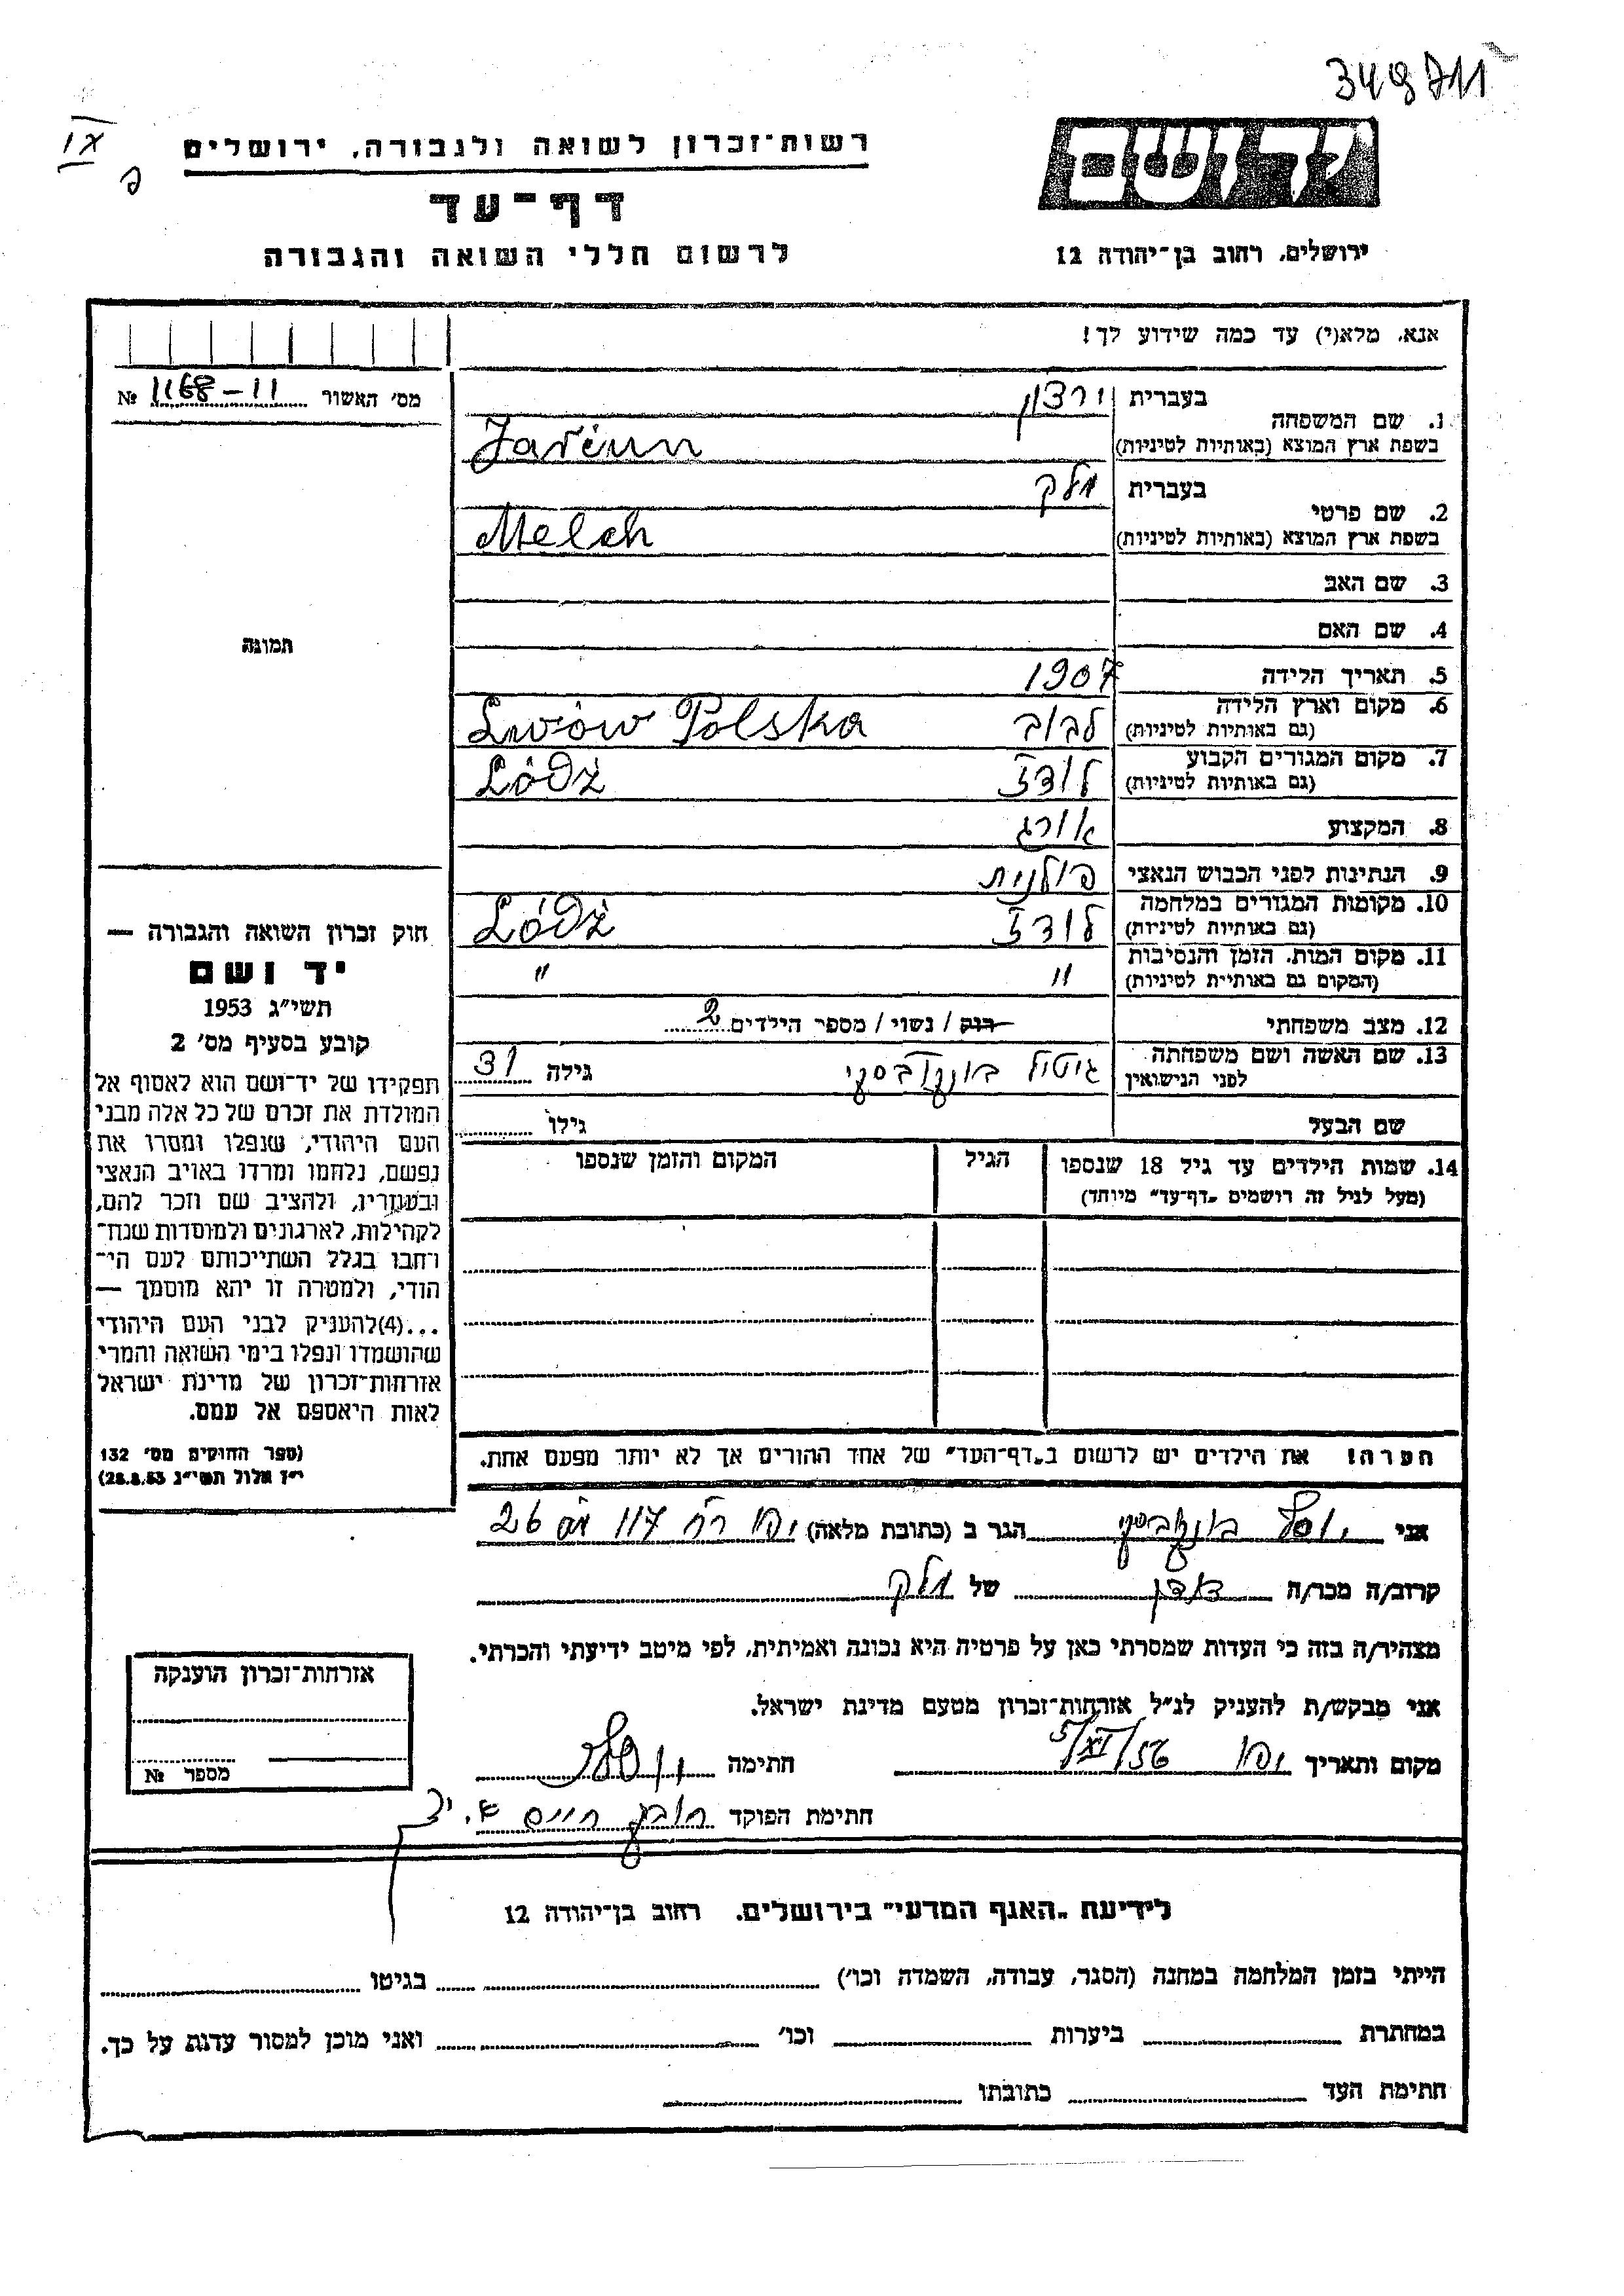 349711
IX
רשות־זכרון לשואה ולגבורה, ירושלים
דף־עד
לרשום חללי השואה והגבורה
ידושם
ירושלים, רחוב בן־יהודה 12
אנא, מלא(י) עד כמה שידוע לך!
מס׳ האשור № 1168-11
תמונה
1. שם המשפחה
בעברית
בשפת ארץ המוצא (באותיות לטיניות)
2. שם פרטי
בעברית מלק
בשפת ארץ המוצא (באותיות לטיניות) Melch
3. שם האב
4. שם האם
5. תאריך הלידה 1907
6. מקום וארץ הלידה
(גם באותיות לטיניות) לבוב Lwów Polska
7. מקום המגורים הקבוע
(גם באותיות לטיניות) לודז Łódź
8. המקצוע אורג
9. הנתינות לפני הכבוש הנאצי פולנית
10. מקומות המגורים במלחמה
(גם באותיות לטיניות) לודז Łódź
11. מקום המות, הזמן והנסיבות
(המקום גם באותיות לטיניות) " "
12. מצב משפחתי רווק / נשוי / מספר הילדים 2
13. שם האשה ושם משפחתה
לפני הנישואין גילה 31
שם הבעל גילו
14. שמות הילדים עד גיל 18 שנספו הגיל המקום והזמן שנספו
(מעל לגיל זה רושמים „דף־עד" מיוחד)
הערה! את הילדים יש לרשום ב„דף־העד" של אחד ההורים אך לא יותר מפעם אחת.
חוק זכרון השואה והגבורה —
יד ושם
תשי"ג 1953
קובע בסעיף מס׳ 2
תפקידו של יד־ושם הוא לאסוף אל
המולדת את זכרם של כל אלה מבני
העם היהודי, שנפלו ומסרו את
נפשם, נלחמו ומרדו באויב הנאצי
ובעוזריו, ולהציב שם וזכר להם,
לקהילות, לארגונים ולמוסדות שנח־
רבו בגלל השתייכותם לעם הי־
הודי, ולמטרה זו יהא מוסמך —
...(4)להעניק לבני העם היהודי
שהושמדו ונפלו בימי השואה והמרי
אזרחות־זכרון של מדינת ישראל
לאות היאספם אל עמם.
(ספר החוקים מס׳ 132
י"ז אלול תשי"ג 28.8.53)
אני הגר ב (כתובת מלאה) יפו רח 117 26
קרוב/ה מכר/ה של מלק
מצהיר/ה בזה כי העדות שמסרתי כאן על פרטיה היא נכונה ואמיתית, לפי מיטב ידיעתי והכרתי.
אני מבקש/ת להעניק לנ"ל אזרחות־זכרון מטעם מדינת ישראל.
מקום ותאריך יפו 5/XI/56 חתימה
חתימת הפוקד
אזרחות־זכרון הוענקה
מספר №
לידיעת „האגף המדעי" בירושלים. רחוב בן־יהודה 12
הייתי בזמן המלחמה במחנה (הסגר, עבודה, השמדה וכו׳) בגיטו
במחתרת ביערות וכו׳ ואני מוכן למסור עדות על כך.
חתימת העד כתובתו